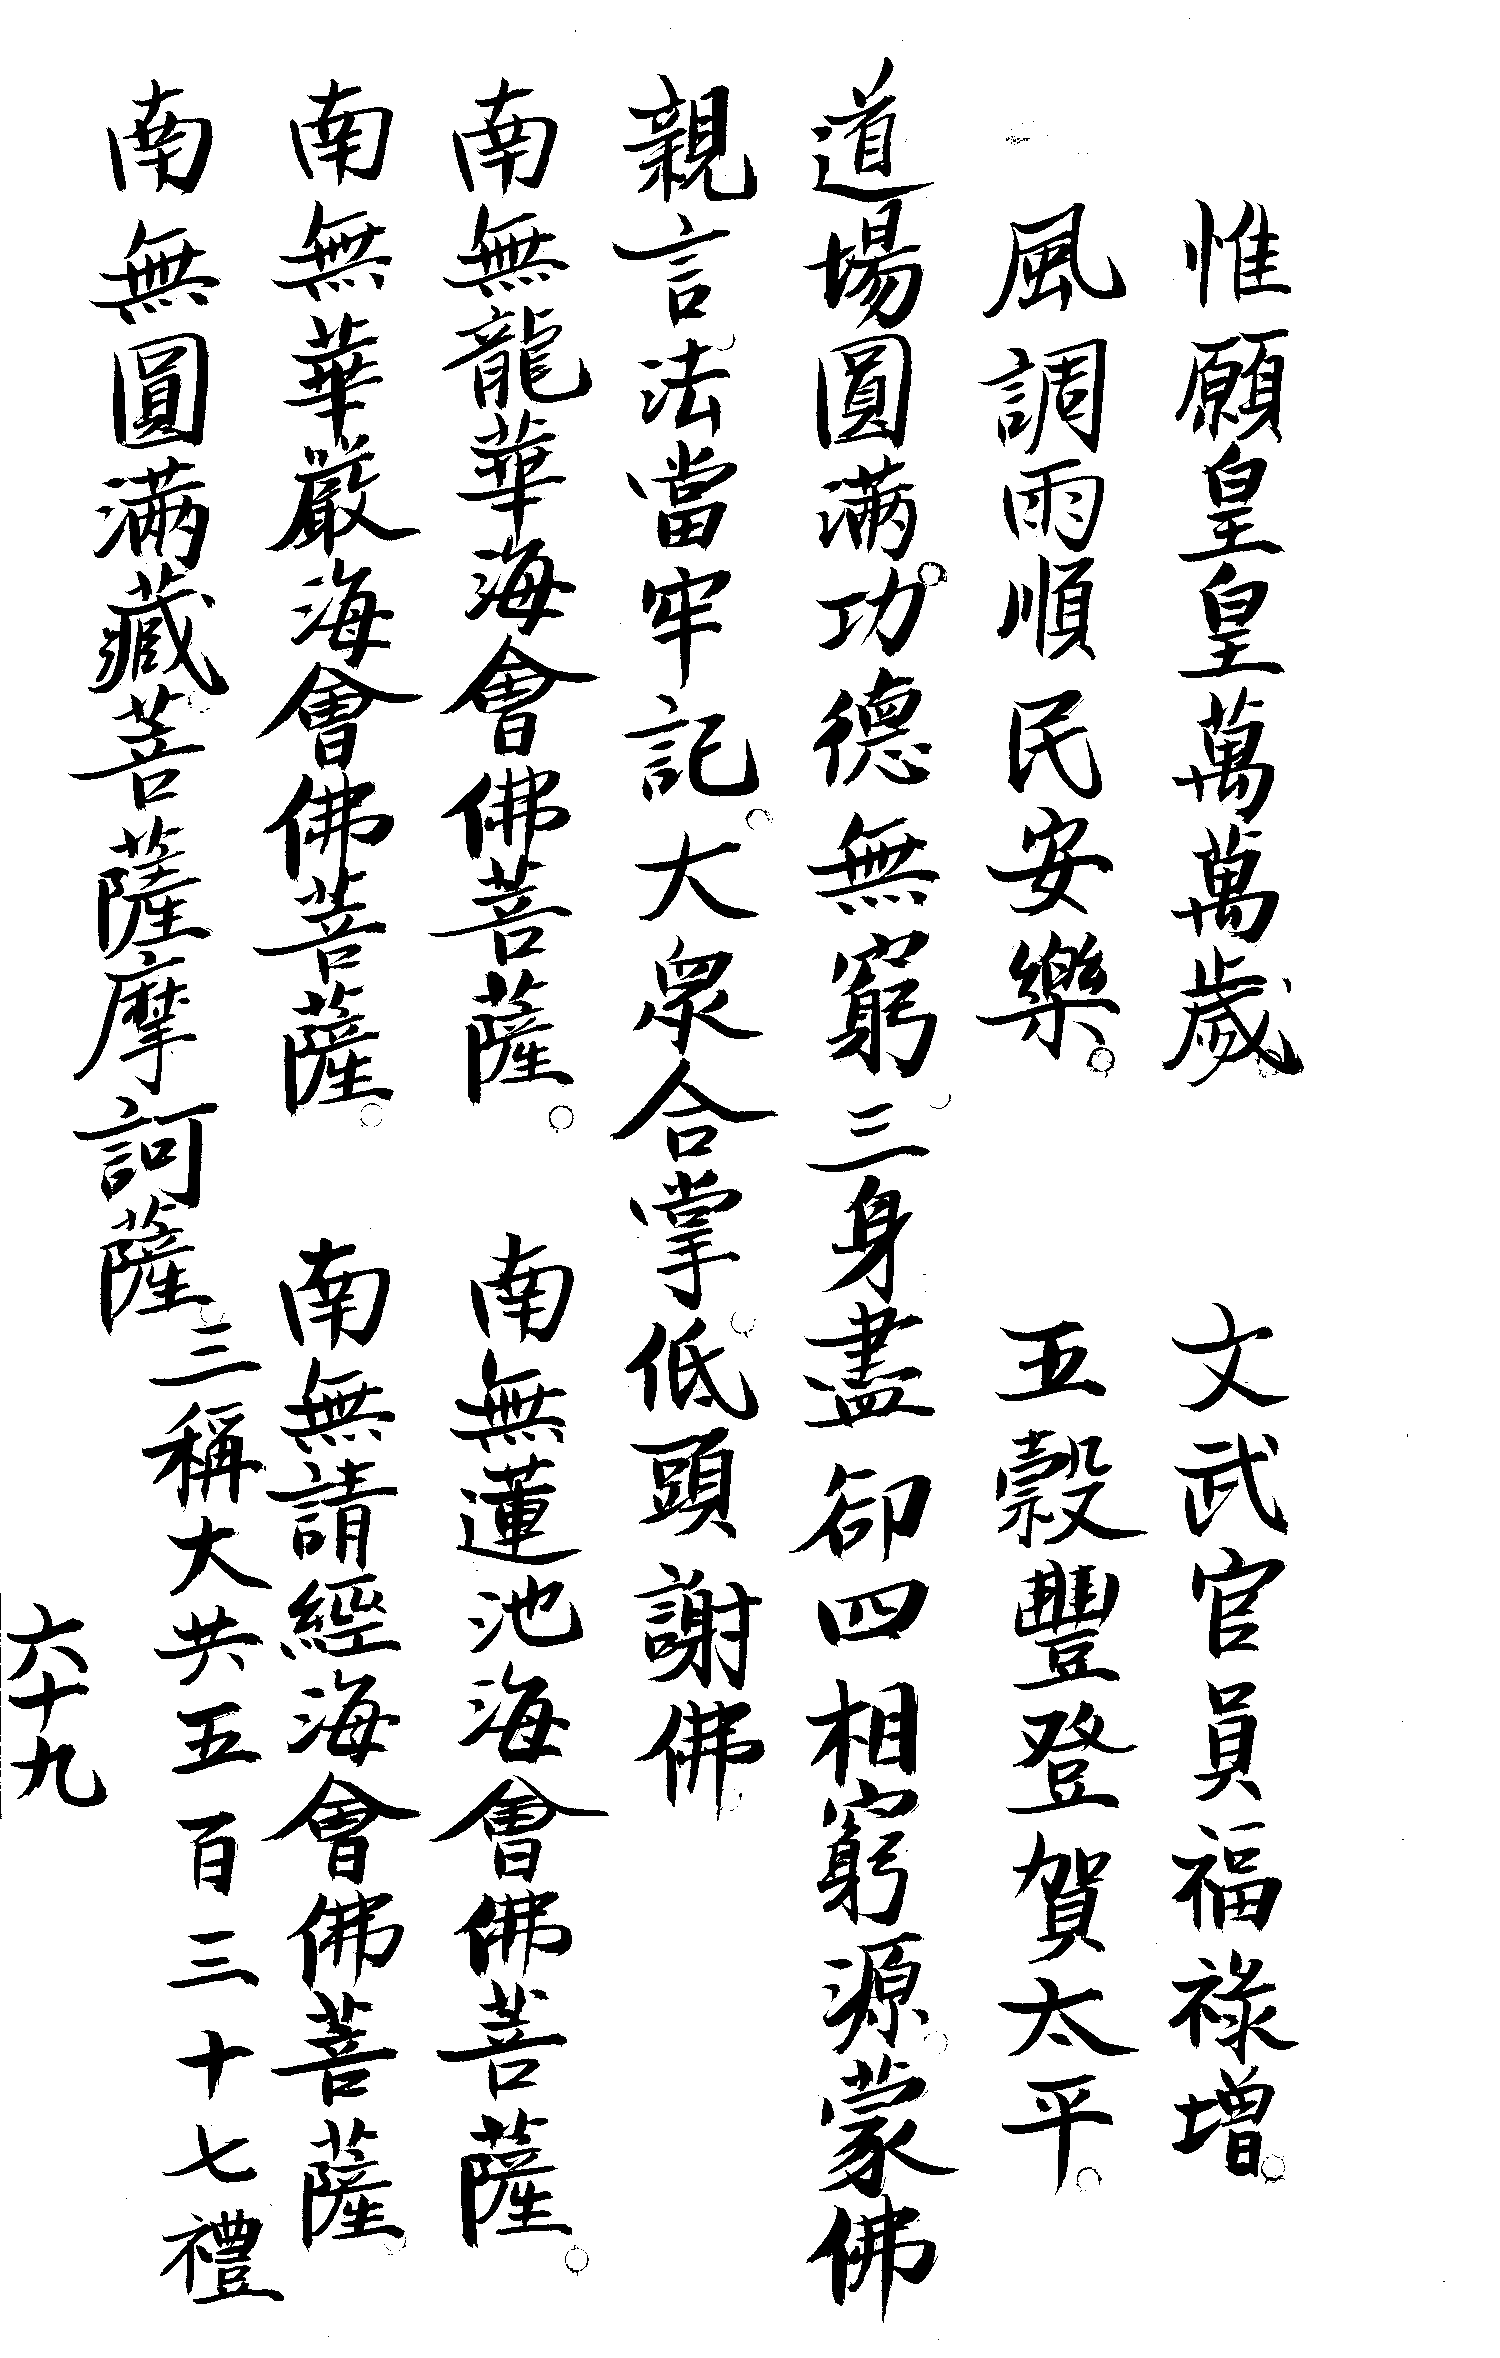 惟願皇皇萬萬歲　文武官員福祿增。
風調雨順民安樂。　五穀豐登賀太平。
道場圓满。功德無窮三身盡卻四相窮源。蒙佛
親言法當牢記。大眾合掌低頭謝佛
南無龍華海會佛菩薩。　南無蓮池海會佛菩薩。
南無華嚴海會佛菩薩。　南無請經海會佛菩薩。
南無圓满藏菩薩摩訶薩。三稱大共五百三十七禮
六十九